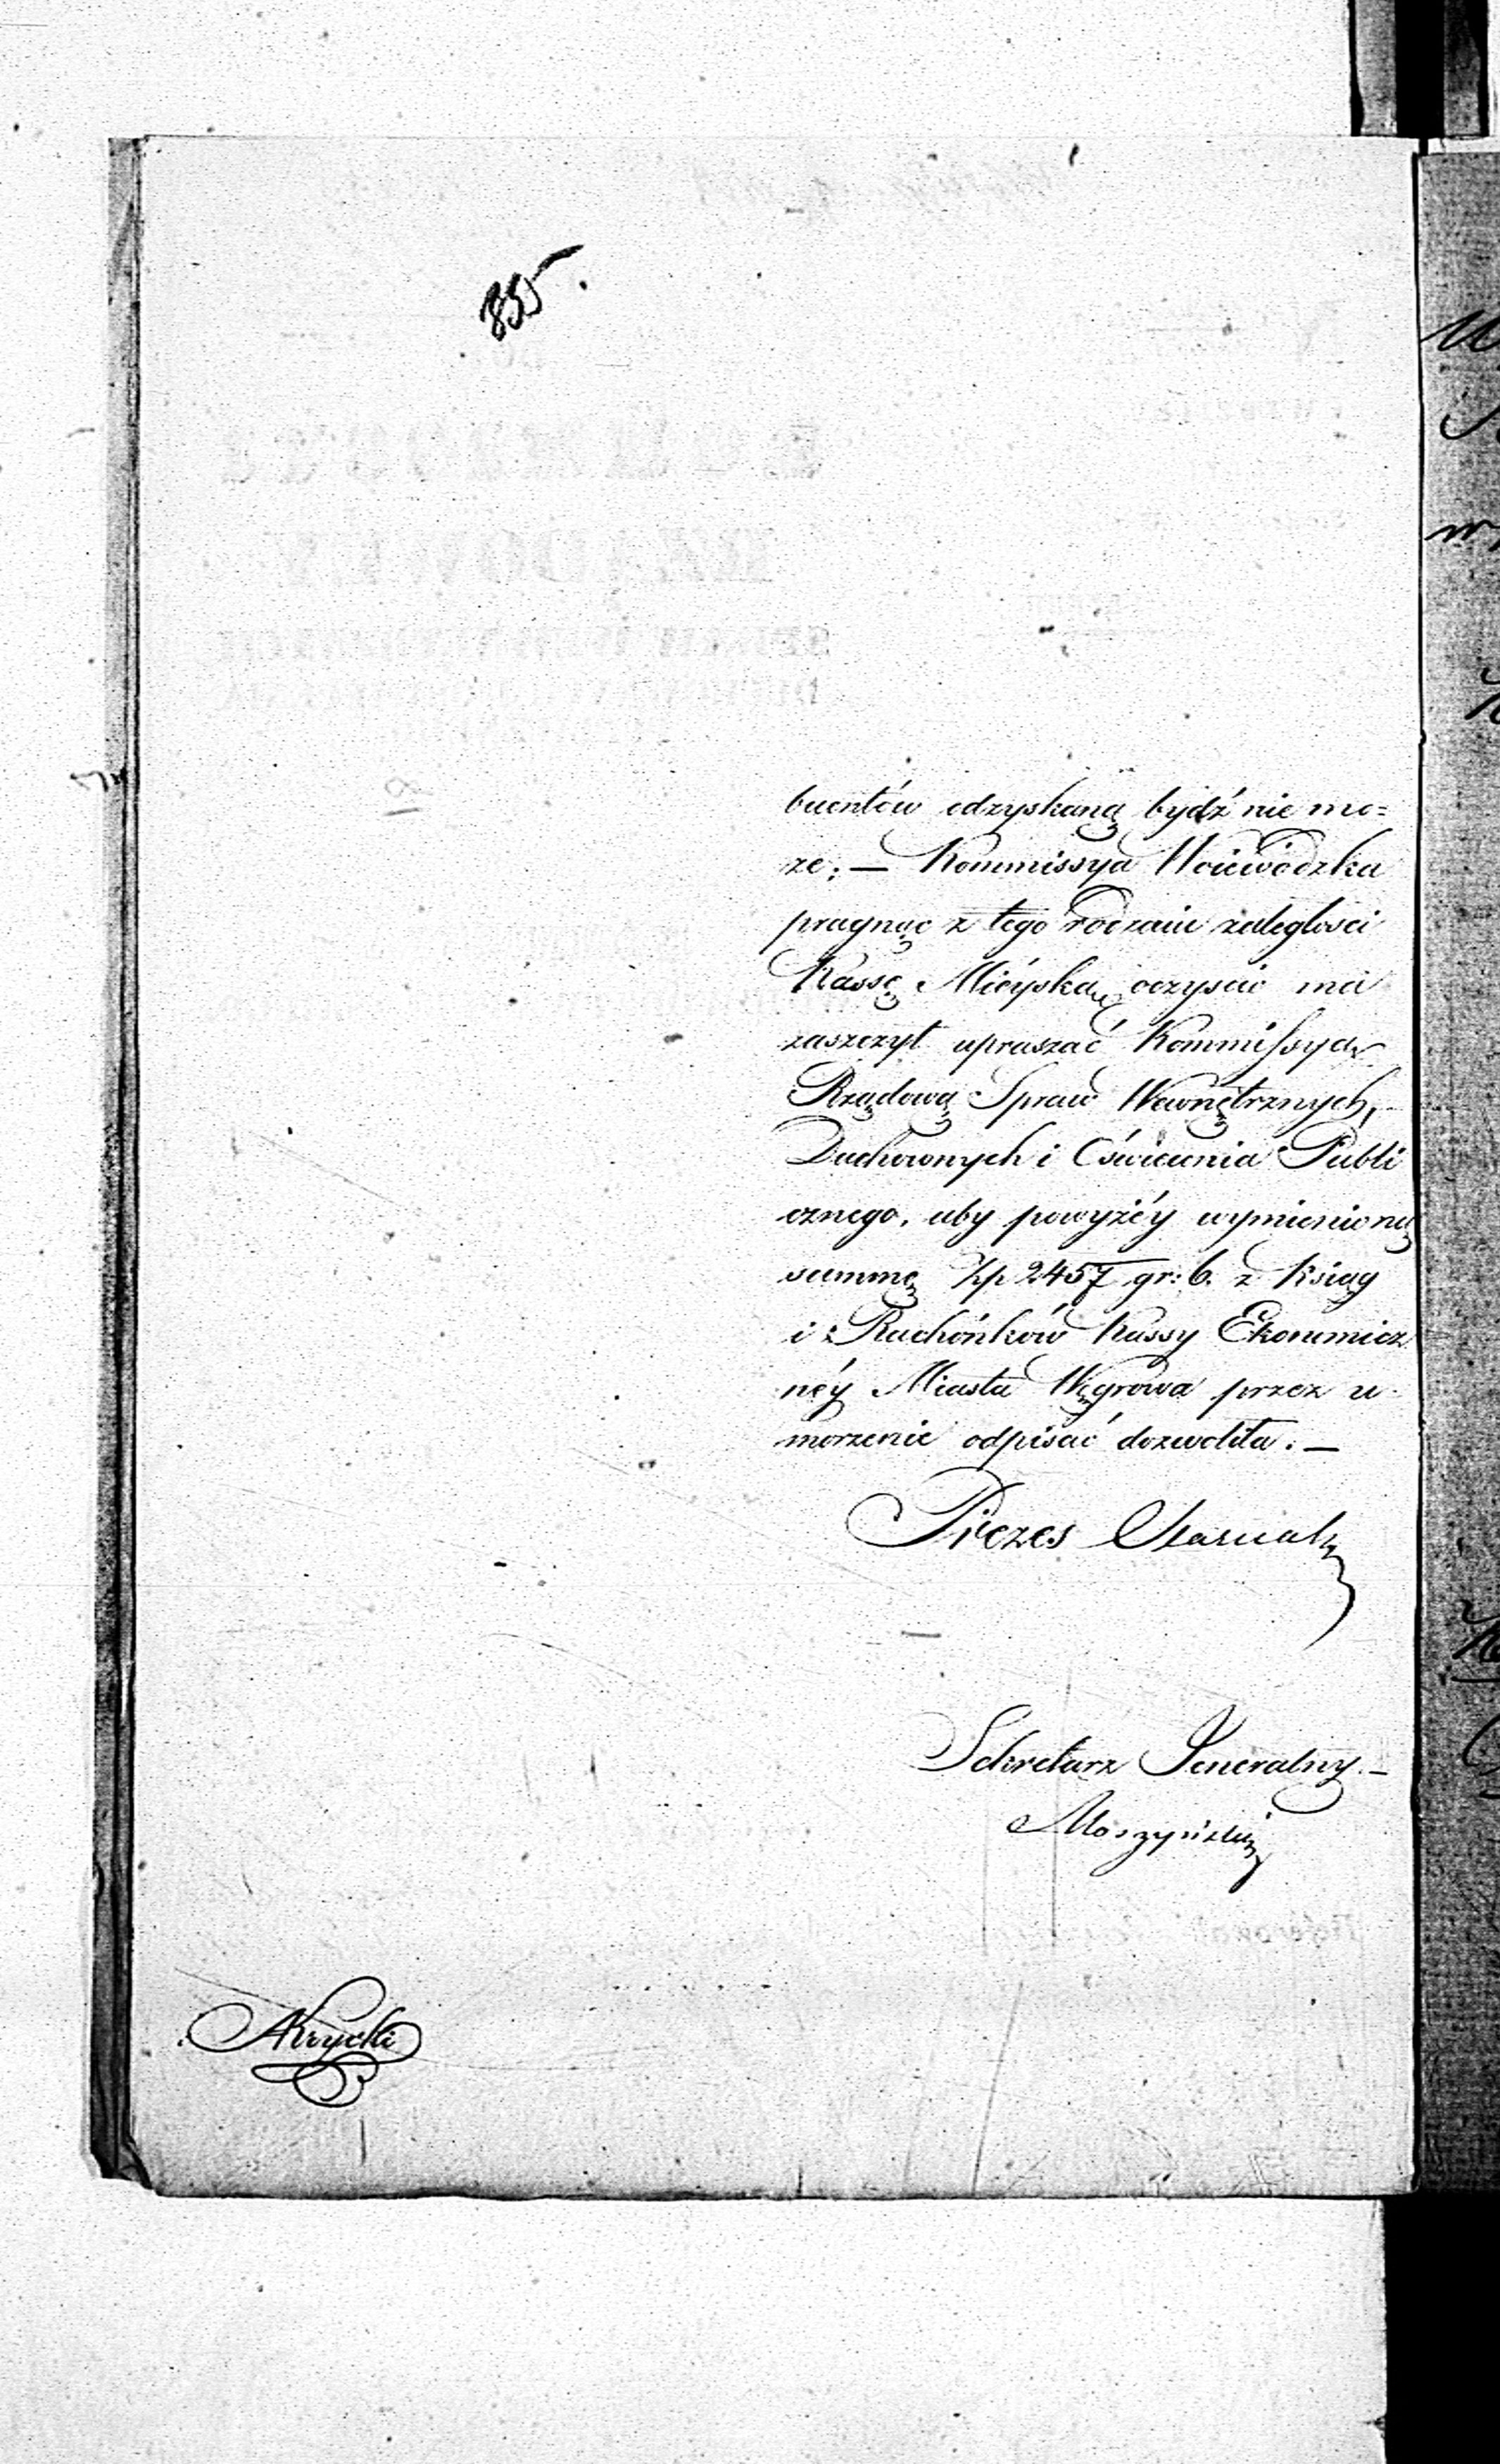 855.
buentów odzyskaną bydź nie mo=
że; — Kommissya Woiewódzka
pragnąc z tego rodzaiu zaległosci
Kassę Mieyską oczyscić ma
zaszczyt upraszać Kommissyą
Rządową Spraw Wewnętrznych,
Duchownych i Oświecenia Publi
cznego, aby powyżéy wymienioną
summę Zp 2457 gr: 6. z Ksiąg
i Rachónków Kassy Ekonomicz
néy Miasta Węgrowa przez u-
morzenie odpisać dozwoliła. —
Prezes
Sekretarz Jeneralny. –
Moszyński